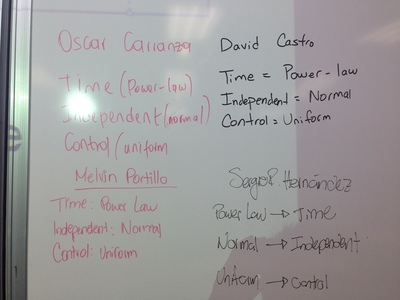 Oscar Carranza
Time (Power-law)
Independent (normal)
Control / uniform
Melvin Portillo
Time: Power Law
Independent: Normal
Control: Uniform
David Castro
Time = Power-law
Independent = Normal
Control = Uniform
Sergio P. Hernández
Power Law → Time
Normal → Independent
Uniform → Control